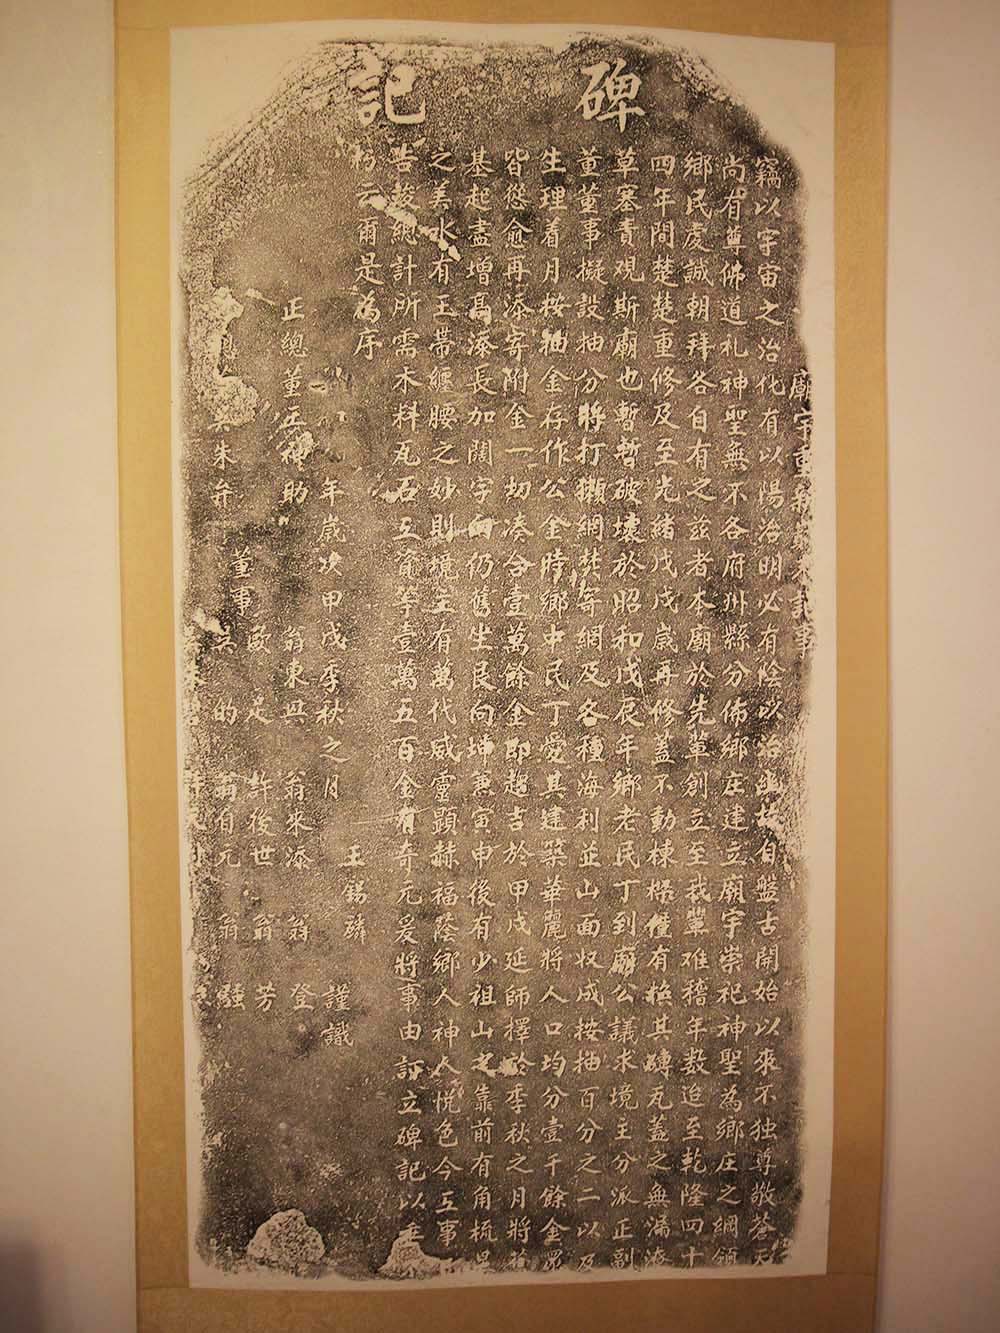 碑記
廟宇重
竊以宇宙之治化有以陽治明必有陰以治幽 自盤古開始以來不独尊敬蒼天
尚有尊佛道礼神聖無不各府州縣分佈鄉庄建立廟宇崇祀神聖為鄉庄之綱領
鄉民虔誠朝拜各自有之茲者本廟於先草創立至我輩难稽年数迨至乾隆四十
四年間楚楚重修及至光緒戊戌歲再修蓋不動棟樑僅有換其磚瓦蓋之無滿湊
草塞責覌斯廟也暫暫破壞於昭和戊辰年鄉老民丁到廟公議求境主分派正副
董董事擬設抽分將打獺網 寄網及各種海利並山面収成按抽百分之二以及
生理着月按抽金存作公金時鄉中民丁愛其建築華麗將人口均分壹千餘金眾
皆愿愈再添寄附金一切凑合壹萬餘金即趨吉於甲戌延師擇於季秋之月將舊
基起盡增髙添長加闊字向仍舊坐艮向坤兼寅申後有少祖山之靠前有角梳
之美水有玉帶纏腰之妙則境主有萬代威靈顕赫福蔭鄉人神人悦色今工事
告竣總計所需木料瓦石工資筆壹萬五百金有奇元爰將事由訂立碑記以垂
朽云爾是為序
年歲次甲戌季秋之月 王錫璘 謹識
正總董王神助 翁東興 翁來添 翁登
董事 足 許後世 翁芳
朱弁 吳的 翁自元 翁強